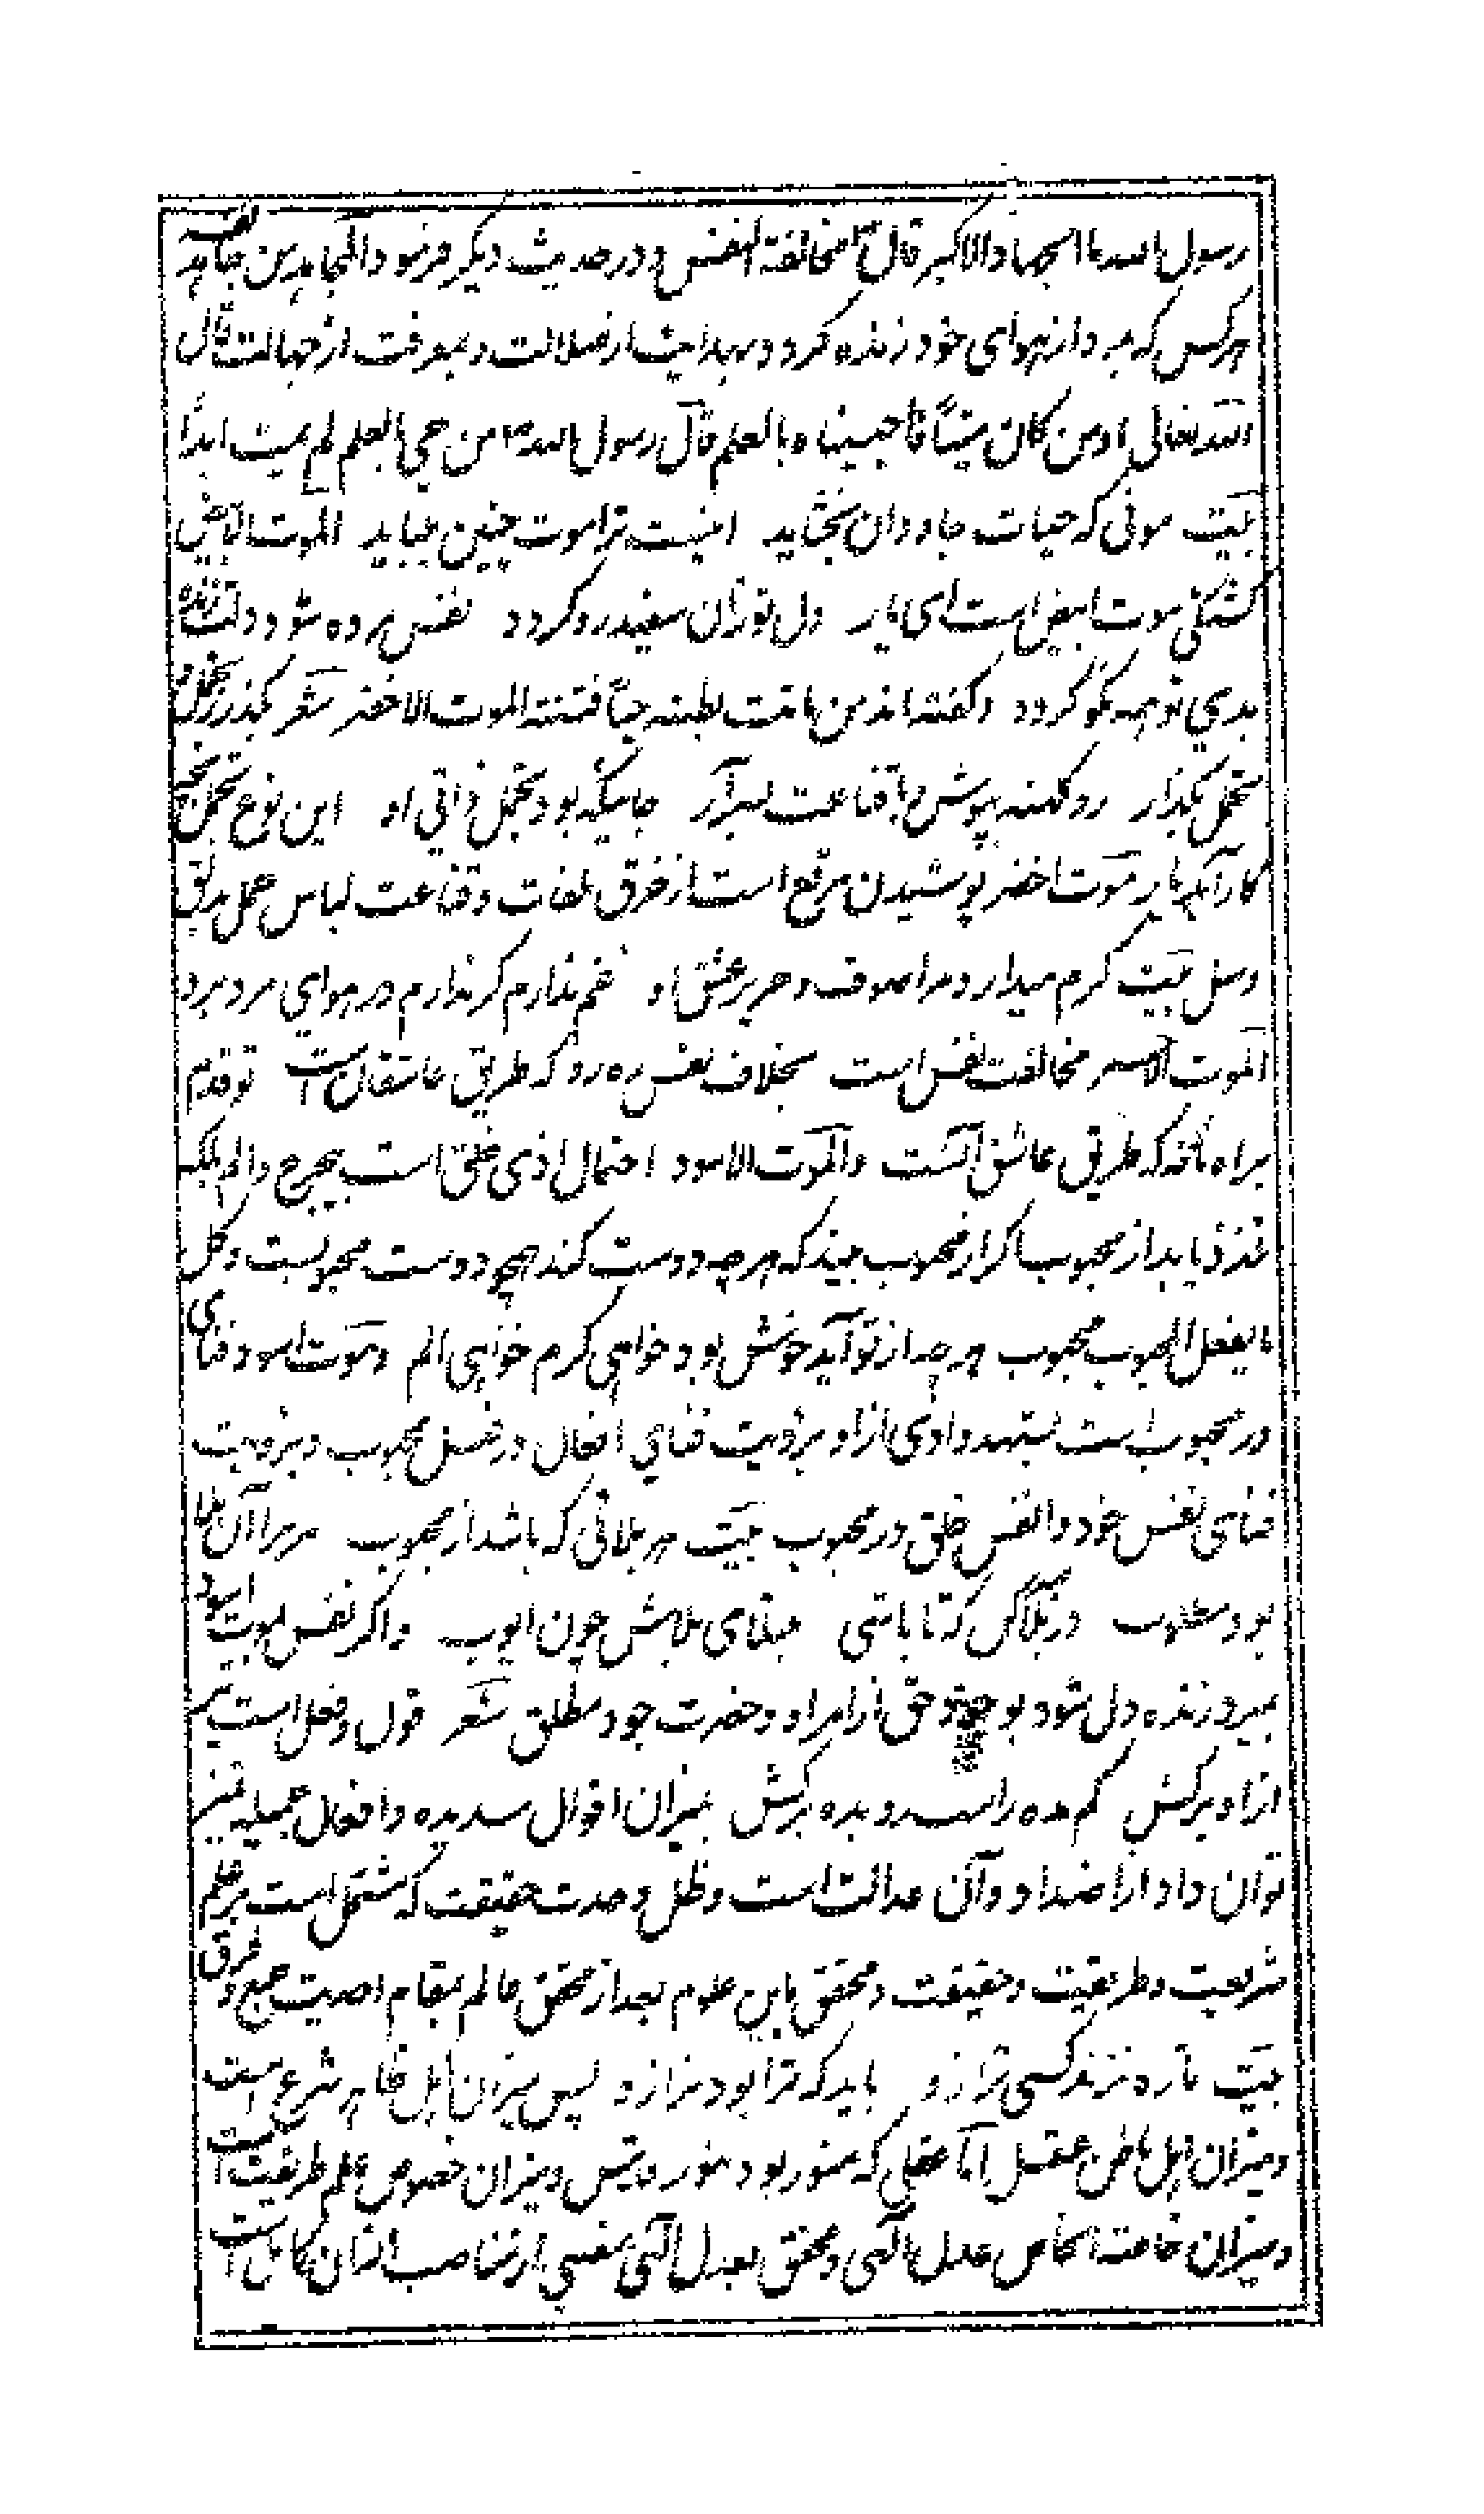 رسول الله ما الجهاد الاکبر قال مخالفة النفس و در حدیث دیگر فرمود المجاهد من جاهد نفسه
هرکس که مرد از هوای خود زنده گردد بهدایت از ضلالت و بمعرفت از جهالت قال
الله تعالی او من کان میتاً فاحییناه بالعلم قال رسول الله من حی بالعلم لم یمت ابداً
بیت موتی که حیات جاودان بخشاید اینست ترا موت چنین میباید الموت الابیض
گشنگی موت ابیض است ای یار دل تو زان سفید رو گردد نفس مرده شود دلت زنده
بدی تو همه نکو گردد و گفته‌اند من ماتت بطنته حیاً فتنته الموت الاخضر شعر بگذر ز تجمل و
تجمل بگذار رو کهنه بپوش و با قناعت بسر آر جائیکه بود تجمل ذاتی او این نوع تجمل بچه
کار آید یار موت اخضر پوشیدن مرقع است از خرق ملقات و قناعت لباس عمل بدلق
وسل بیت گرم میدارد مرا صوف و حریر عشق او غم ندارم گر ندارم در هوای سرد برد
الموت الاحمر مخالفت نفس است بخلاف نفس ره رو که طریق عاشقان است تو قدم
براه ما نه که طریق عاشق آنست والموت الاسود احتمال اذی خلق است بی حرج و الم بلکه
تلذذ یابد از محبوب اگر از محبوب بیند که هر چه دوست کند همچو دوست محبوبست و کل
ما یفعل المحبوب محبوب هر چه از تو آید خوش بود خواهی کرم خواهی الم و موت اسود فنای
در محبوب است بشهود اذی ازاو برؤیت فنای افعال در فعل محبوب و برؤیت
فنای نفس خود و انفس خلق در محبوب بیت هر بلائی که باشد از محبوب مر مرا آن بلا
بود مطلوب در بلا گر تا باشی مبتلای بلاش چون ایوب و اگر نفس بموت اسود
بمیرد زنده دل شود بوجود حق از امداد حضرت جود مطلق شعر قول و فعل است
ازاو برکش کم مده راست رو بده برکش میزان اقوال سدیده و افعال جمیله تمیز
توان داد از اضداد و آن عدالت است و ظل وحدت حقیقت که مشتمل است بر علم
شریعت و طریقت و حقیقت و محقق باین علوم بعد از تحقق عالم بمقام احدیت جمع و فرق
بیت تازه نزند کسی ترازو باید که ترا بود ترازو پس میزان اهل ظاهر شرع است
و میزان اهل باطن عقل اما عقلی که منور بود بنور قدس و میزان خصوص علم طریقت است
و میزان خاصة الخاص عدل الهی و محقق بعدل الهی از مناصب انسان کامل است